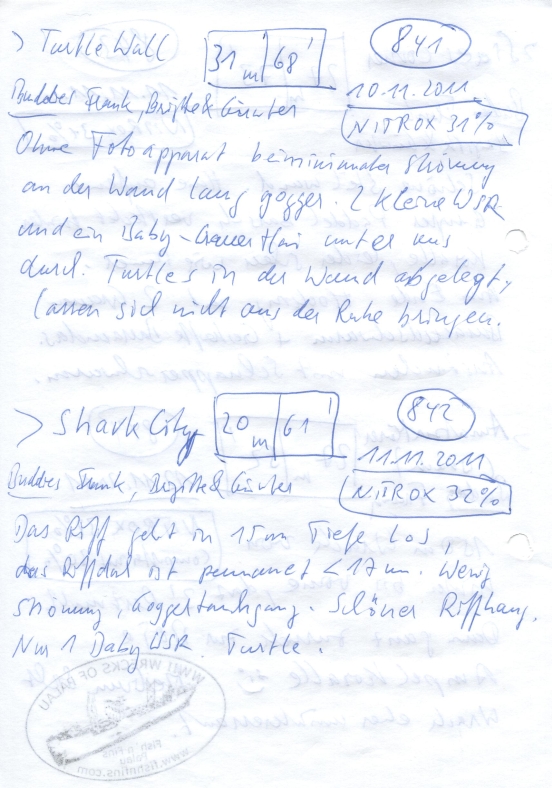 > Turtle Wall 31 m 68' 841
10.11.2011
Buddies Frank, Brigitte & Günter
NITROX 31%
Ohne Fotoapparat bei minimaler Strömung
an der Wand lang gegoggelt. 2 kleine WSR
und ein Baby-Grauer Hai unter uns
durch. Turtles in der Wand abgelegt,
lassen sich nicht aus der Ruhe bringen.
> Shark City 20 m 61' 842
11.11.2011
Buddies Frank, Brigitte & Günter
NITROX 32%
Das Riff geht in 15m Tiefe los,
das Riffdach ist permanent < 17 m. Wenig
Strömung, Goggeltauchgang. Schöner Riffhang.
Nur 1 Baby WSR. Turtle.
WWII WRECKS OF PALAU
Fish 'n Fins
Palau
www.fishnfins.com